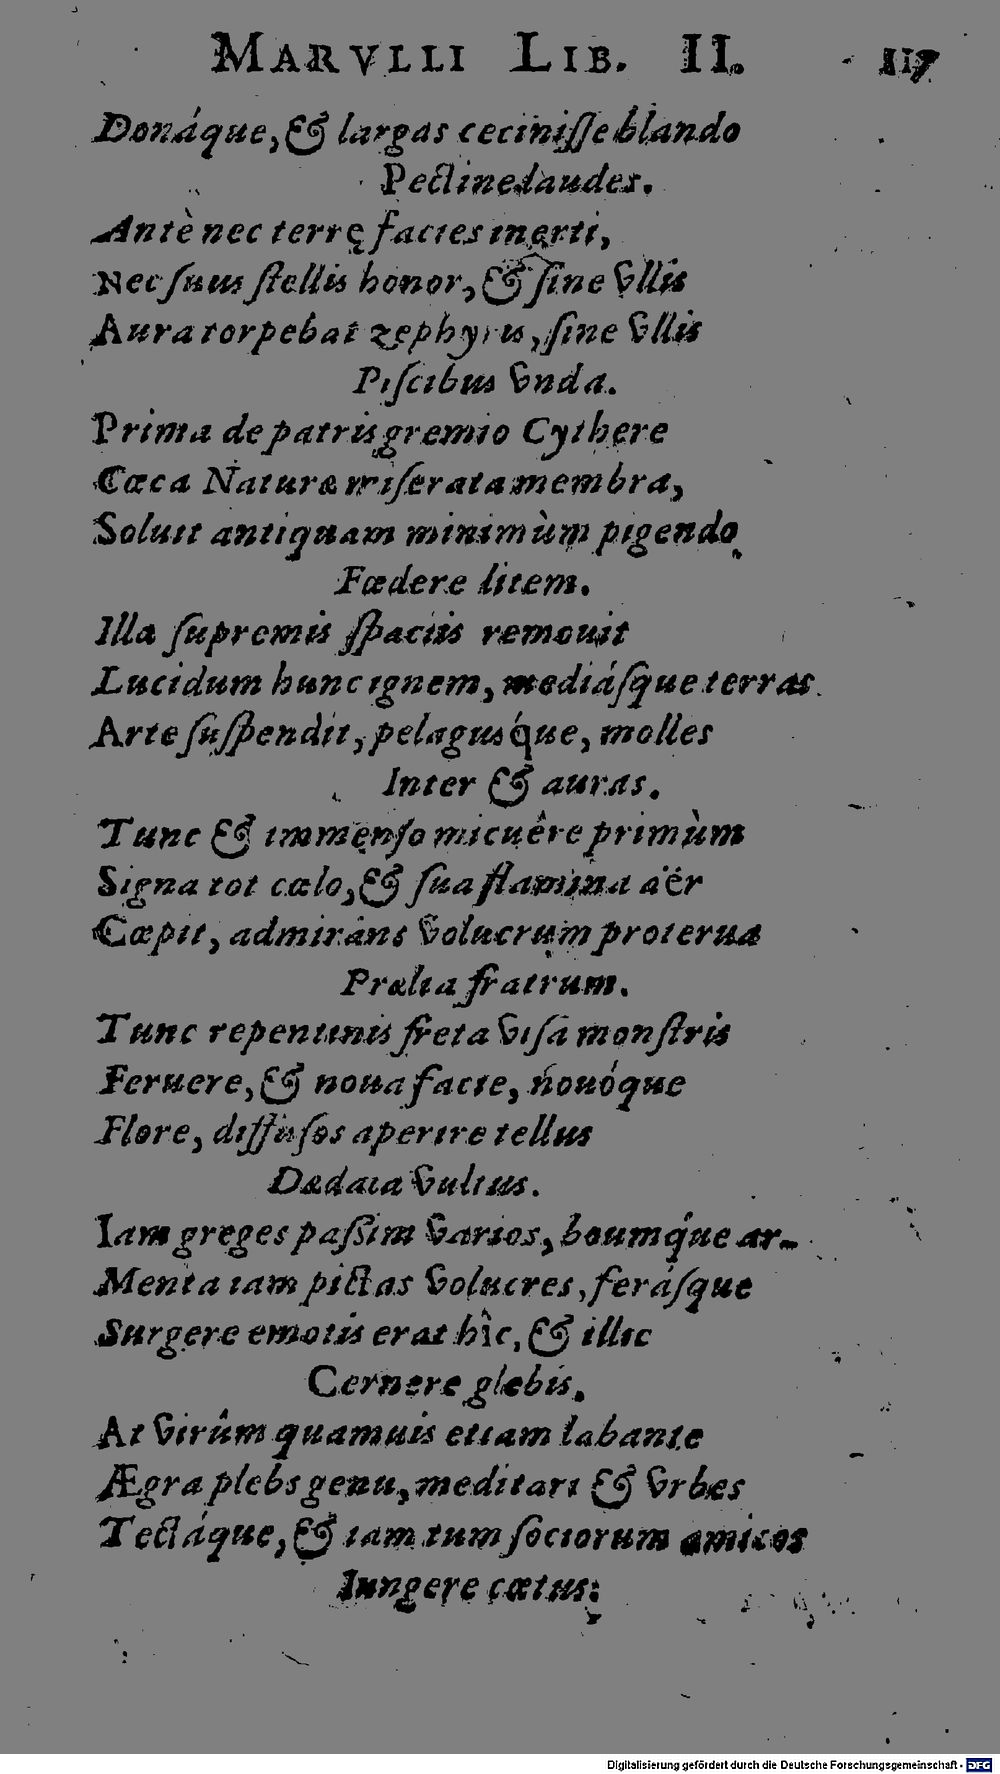 MARVLLI LIB. II. 117
Donáque, & largas cecinisse blando
Pectine laudes.
Antè nec terrę facies inerti,
Nec suus stellis honor, & sine vllis
Aura torpebat zephyris, sine vllis
Piscibus vnda.
Prima de patris gremio Cythere
Cæca Naturæ miserata membra,
Soluit antiquam minimùm pigendo
Fœdere litem.
Illa supremis spaciis remouit
Lucidum hunc ignem, mediásque terras
Arte suspendit, pelagusq́ue, molles
Inter & auras.
Tunc & immenso micuêre primùm
Signa tot cælo, & sua flamina aër
Cœpit, admirans volucrum proterua
Prælia fratrum.
Tunc repentinis freta visa monstris
Feruere, & noua facie, nouóque
Flore, diffusos aperire tellus
Dædala vultus.
Iam greges passim varios, boumq́ue ar-
Menta iam pictas volucres, ferásque
Surgere emotis erat hîc, & illic
Cernere glebis.
At virûm quamuis etiam labante
Ægra plebs genu, meditari & vrbes
Tectáque, & iam tum sociorum amicos
Iungere cœtus:
Digitalisierung gefördert durch die Deutsche Forschungsgemeinschaft - DFG